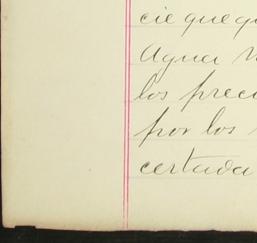 cie que q
Agua
los preci
por los
certada